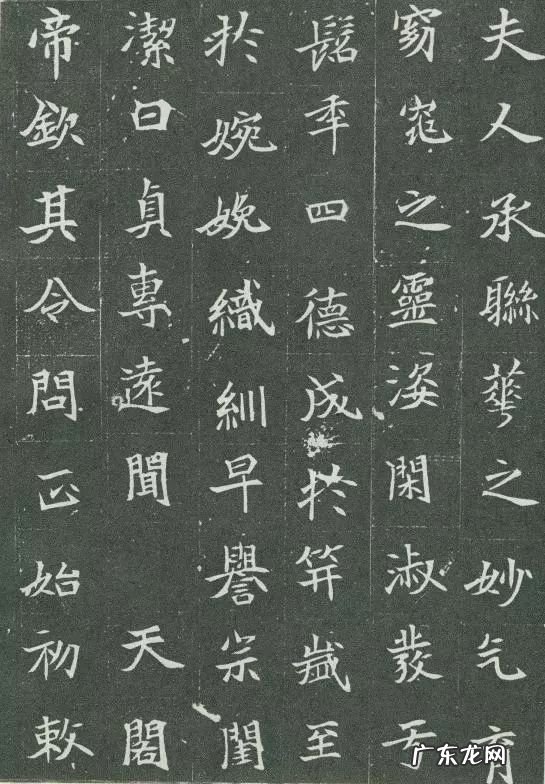 夫人承聯華之妙气育
窈窕之靈姿閑淑發于
髫年四德成於笄歲至
於婉娩織紃早譽宗閨
潔曰貞專遠聞 天閣
帝欽其令問正始初敕
广东龙网